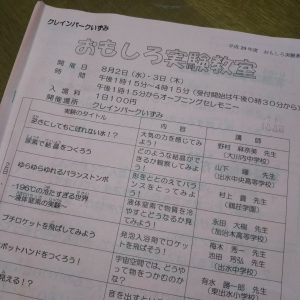 クレインパークいずみ
平成 29 年度 おもしろ実験
おもしろ実験教室
開 催 日 8月2日(水)・3日(木)
時 間 午後1時15分~4時15分(受付開始は午後0時30分から)
午後1時15分からオープニングセレモニー
入 場 料 1日100円
開催場所 クレインパークいずみ
実験のタイトル 内 容 講 師
逆さにしてもこぼれない水!? 大気の力を感じてみよう! 野村 麻奈美 先生
(大川内中学校)
尿素で結晶をつくろう どのような結晶ができるか観察してみよう! 山下 先生
(出水中央高等学校)
ゆらゆらゆれるバランストンボ 形をととのえてバランスをとってみよう! 村上 貴 先生
(鶴荘学園)
-196℃の冷たすぎる世界
液体窒素の実験~ 液体窒素で物質を冷やすとどうなるか見てみよう! 永田 大樹 先生
(加治木高等学校)
プチロケットを飛ばしてみよう! 発泡入浴剤でロケットを飛ばそう! 梅木 秀一 先生
池田 芳弘 先生
(出水中学校)
ボットハンドをつくろう! 宇宙空間では、どうやって物をつかむのかな? 有水 勝一郎 先生
(東出水小学校)
見える!? 音を出すとい